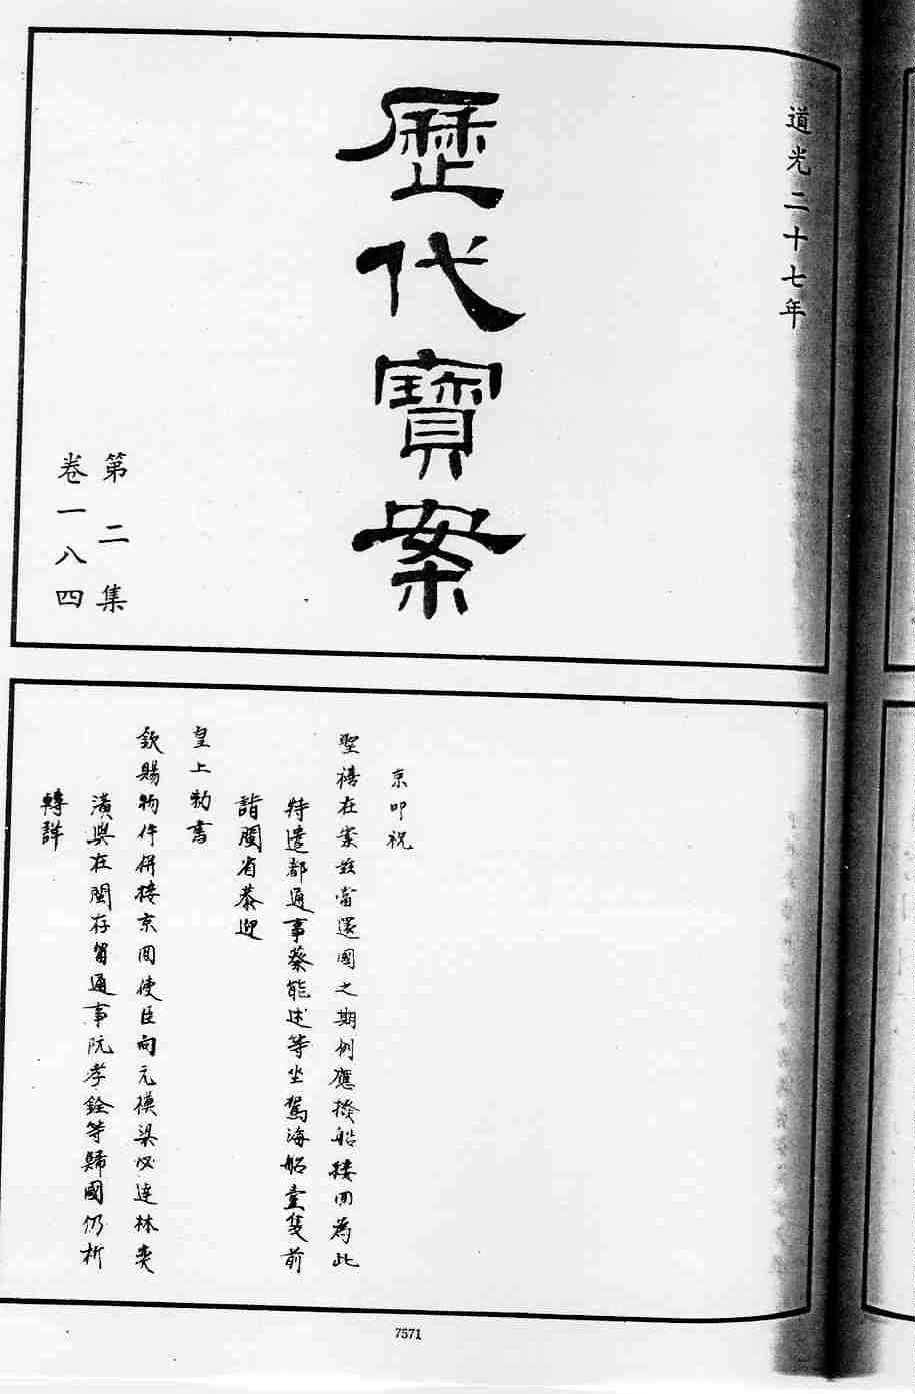 道光二十七年
歷代寶案
第二集
卷一八四
京叩祝
聖禧在案茲當還國之期例應撥船接回為此
特遣都通事蔡能述等坐駕海船壹隻前
詣閩省恭迎
皇上勅書
欽賜物件併接京回使臣向元模梁必達林奕
潢與在閩存留通事阮孝銓等歸國仍祈
轉詳
7571